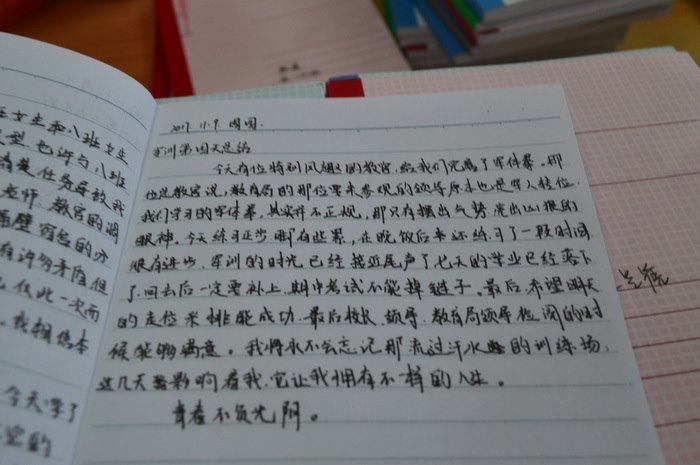 班女生和八班女生
型.也许与八班
任务导致我
老师.教官的调
隔壁宿舍的
有许多矛盾但
仅此一次而
我相信本
今天学了
2017.11.9 周四.
军训第四天总结
今天有位特别风趣的教官,给我们完整了军体拳.那
位总教官说,教育局的那位要来参观的领导原来也是军人转位.
我们学习的军体拳.其实并不正规,那只有摆出气势亮出凶狠的
眼神.今天练习正步.都有些累,在晚饭后来还练习了一段时间
很有进步.军训的时光已经接近尾声了七天的学业已经落下
了.回去后一定要补上.期中考试不能掉链子.最后.希望明天
的走位米排能成功.最后校长.领导.教育局领导检阅的时
候能够满意。我将永不会忘记那流过汗水的训练场.
这几天影响着我,它让我拥有不一样的人生。
青春不负光阴。